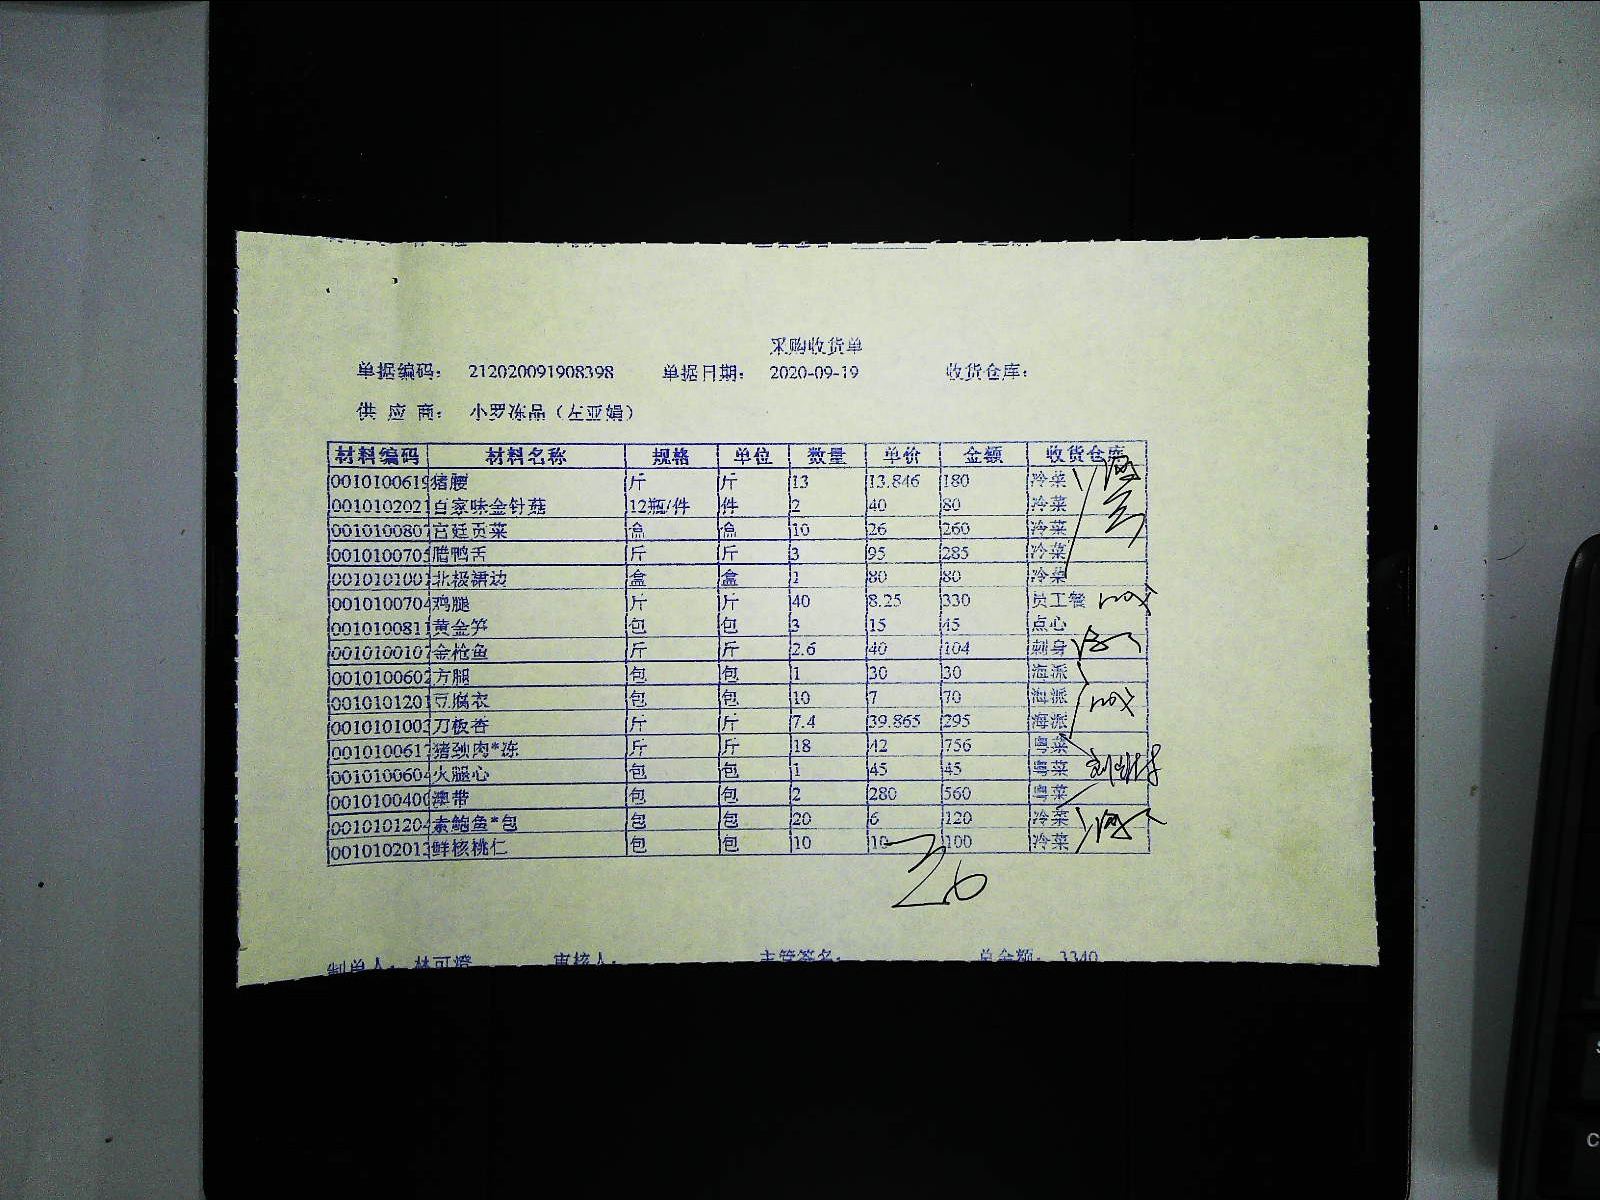 采购收货单
单据编码： 212020091908398 单据日期： 2020-09-19 收货仓库：
供 应 商： 小罗冻品（左亚娟）
材料编码 材料名称 规格 单位 数量 单价 金额 收货仓库
001010061 猪腰 斤 斤 13 13.846 180 冷菜
001010202 百家味金针菇 12瓶/件 件 2 40 80 冷菜
001010080 宫廷贡菜 盒 盒 10 26 260 冷菜
001010070 腊鸭舌 斤 斤 3 95 285 冷菜
001010100 北极裙边 盒 盒 1 80 80 冷菜
001010070 鸡腿 斤 斤 40 8.25 330 员工餐
001010081 黄金笋 包 包 3 15 45 点心
001010010 金枪鱼 斤 斤 2.6 40 104 刺身
001010060 方腿 包 包 1 30 30 海派
001010120 豆腐衣 包 包 10 7 70 海派
001010100 刀板香 斤 斤 7.4 39.865 295 海派
001010061 猪颈肉*冻 斤 斤 18 42 756 粤菜
001010060 火腿心 包 包 1 45 45 粤菜
001010040 澳带 包 包 2 280 560 粤菜
001010120 素鲍鱼*包 包 包 20 6 120 冷菜
001010201 鲜核桃仁 包 包 10 10 100 冷菜
26
制单人： 林可燈 审核人： 主管签名： 总金额： 3340